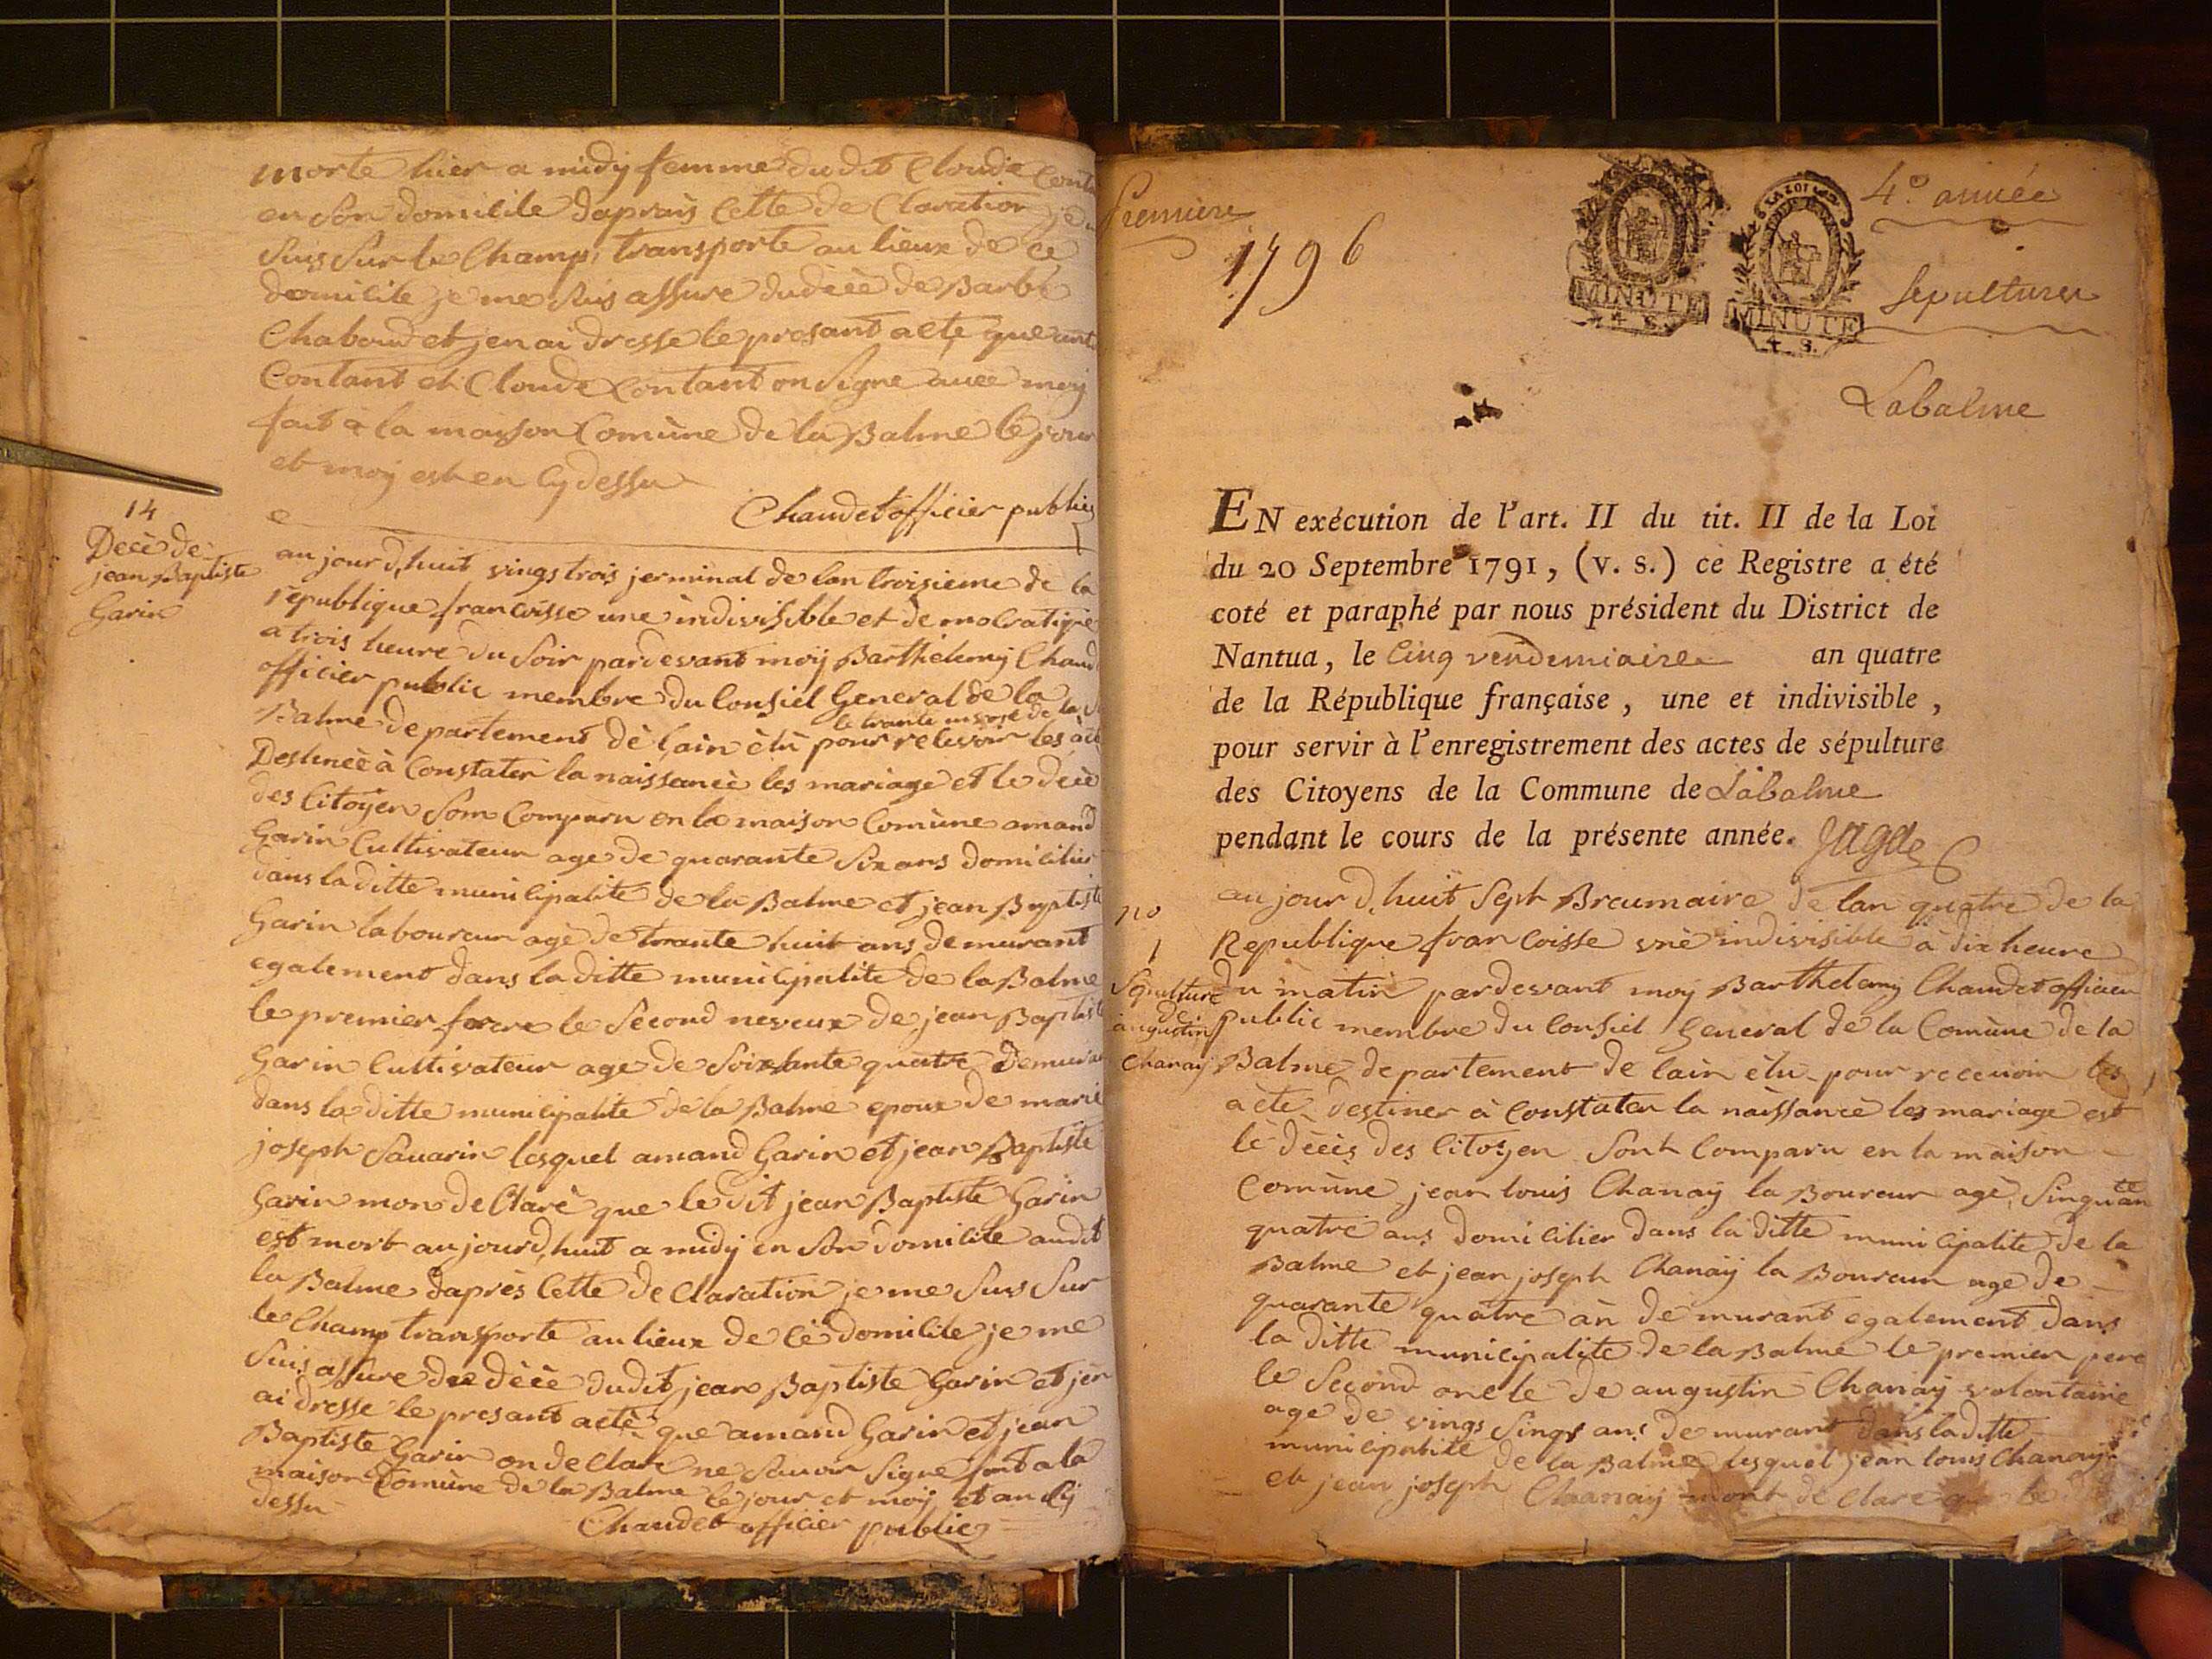 morte hier a midÿ femme du dit Cloude
en son domicile daprais Cette de Claration je
suis sur le Champ transporte au lieux de ce
domicile je me suis assure du dèeè de Barbe
Chaboud et jen ai dresse le presant acte que
Contant et Cloude Contant on signe avec moÿ
fait à la maison Comùne de la Balme le jour
et moÿ est en Cydessu
Chaudet officier public
14
Decè de
jean Baptiste
Garin
au jour d,huit vings trois jerminal de lan troisieme de la
republique francoisse une indivisible et de mocratique
a trois heure du soir pardevant moÿ Barthelemÿ Chaud
officier public membre du Consiel General de la
le trante nivose de la
Balme departement dè lain èlù pour relevoir les
Destineè à Constater la naissanceè les mariage et le dèeè
des Citoÿen Som Comparu en la maison Comùne amand
Garin Cultivateur age de quarante six ans domicilier
dans la ditte municipalite de la Balme et jean Baptiste
Garin laboureur agè de trante huit ans demurant
egalement dans la ditte municipalite de la Balme
le premier frere le second neveux de jean Baptist
Garin Cultivateur age de soixsante quatre Demura
dans la ditte municipalite de la Balme epoux de marie
joseph Savarin lesquel amand Garin et jean Baptiste
Garin mon de Clarè que le dit jean Baptiste Garin
est mort au jourd,huit a midÿ en son domicile audit
la Balme daprès Cette de Claration je me suis sur
le Champ transporte au lieux de cè domicile je me
suis assure du dèeè dudit jean Baptiste Garin et jen
ai dresse le presant actè que amand Garin et jean
Baptiste Garin on de Clare ne savoir signe fait a la
maison Comùne de la Balme le jour et moÿ et an Cÿ
dessu
Chaudet officier public
Premiere
1796
MINUTE
4. S.
LA LOI
MINUTE
4. S.
4.e année
Sepultures
Labalme
EN exécution de l'art. II du tit. II de la Loi
du 20 Septembre 1791, (v. s.) ce Registre a été
coté et paraphé par nous président du District de
Nantua, le Cinq vendemiaire an quatre
de la République française, une et indivisible,
pour servir à l'enregistrement des actes de sépulture
des Citoyens de la Commune de Labalme
pendant le cours de la présente année.
no
1
Sepulture
de
augustin
Chanaÿ
au jour d,huit Sept Braumaire de lan quatre de la
Republique francoisse vnè indivisible à dix heure
du matin pardevant moÿ Barthelemÿ Chaudet officier
public membre du Consiel General de la Comùne de la
Balme departement de lain èlu pour recevoir les
acte destiner à Constater la naissancè les mariage est
lè dèeès des Citoÿen sont Comparu en la maison
Comùne jean louis Chanaÿ la Boureur agè Sinquante
quatre ans domicilier dans la ditte municipalite de la
Balme et jean joseph Chanaÿ la Boureur age de
quarante quatre an de murant egalement dans
la ditte municipalite de la Balme le premier pere
le second oncle de augustin Chanaÿ volontaire
age de vings sinqs ans de murant dans la ditte
municipalite de la Balme lesquel jean louis Chanaÿ
et jean joseph Chanaÿ mont de clare que le